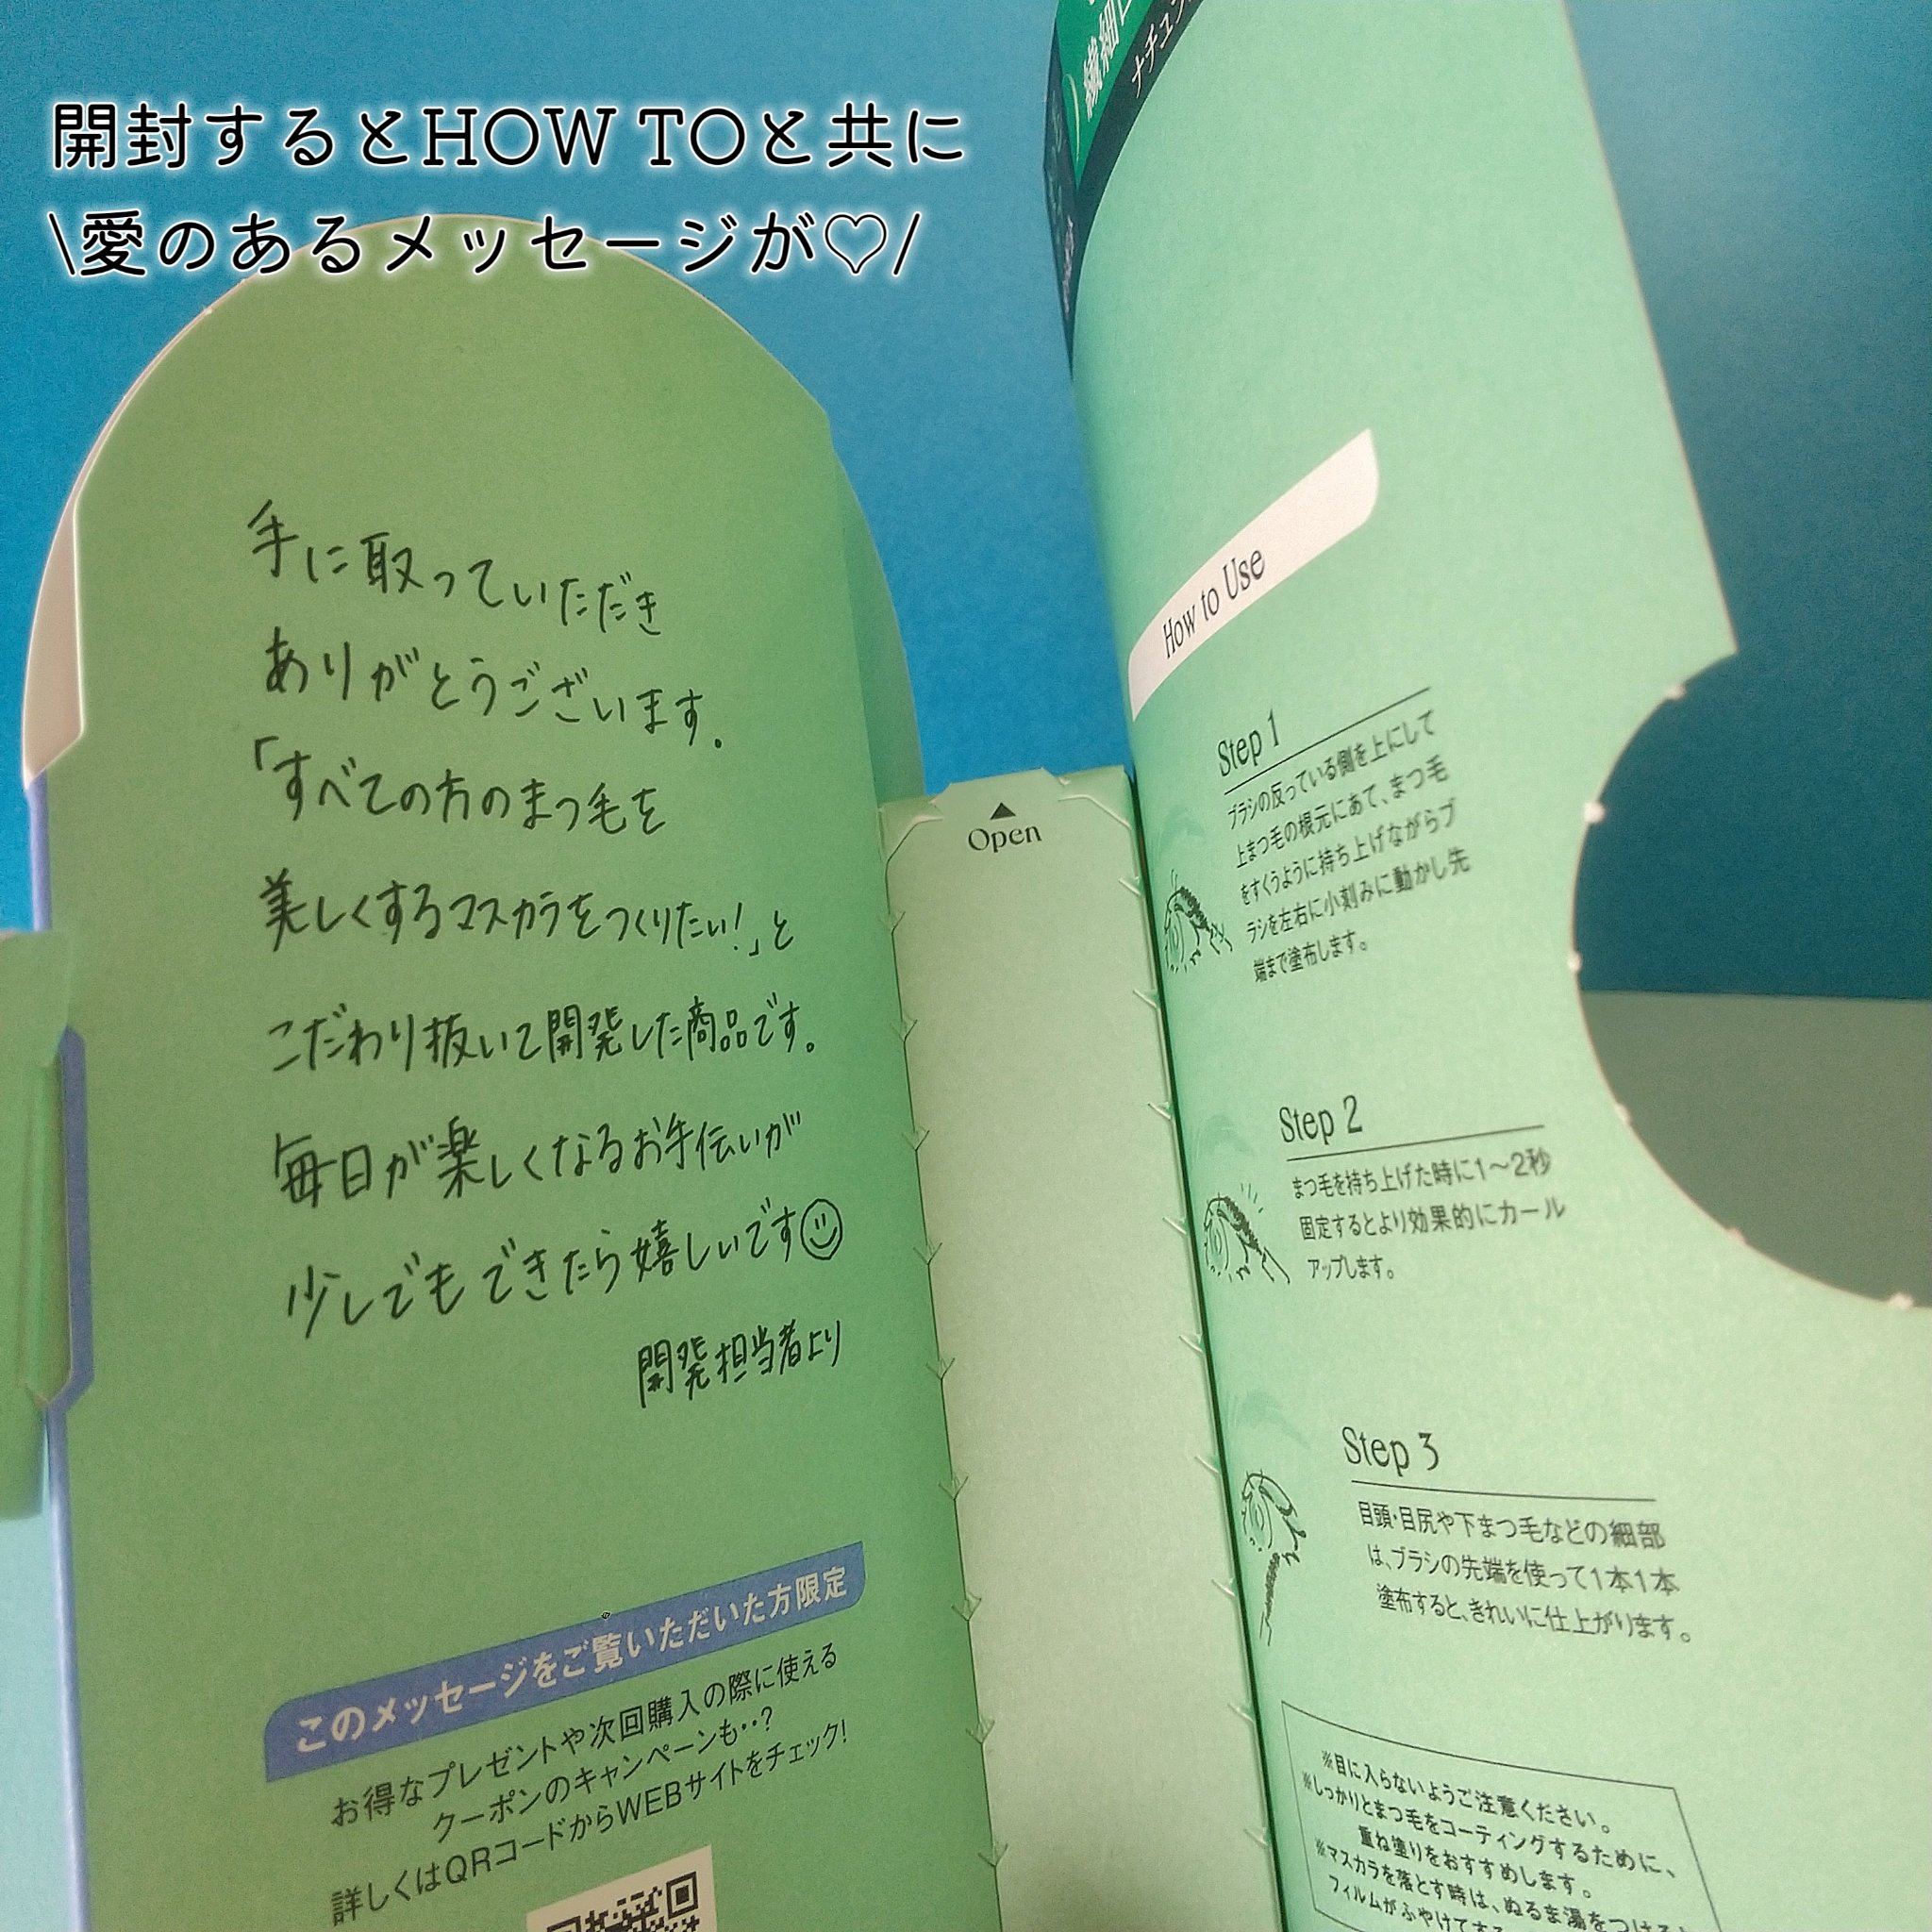 開封するとHOW TOと共に
\愛のあるメッセージが♡/
手に取っていただき
ありがとうございます。
「すべての方のまつ毛を
美しくするマスカラをつくりたい!」と
こだわり抜いて開発した商品です。
毎日が楽しくなるお手伝いが
少しでもできたら嬉しいです
開発担当者より
このメッセージをご覧いただいた方限定
お得なプレゼントや次回購入の際に使える
クーポンのキャンペーンも‥?
詳しくはQRコードからWEBサイトをチェック!
▲
Open
繊細
ナチュ
How to Use
Step 1
ブラシの反っている側を上にして
上まつ毛の根元にあて、まつ毛
をすくうように持ち上げながらブ
ラシを左右に小刻みに動かし先
端まで塗布します。
Step 2
まつ毛を持ち上げた時に1～2秒
固定するとより効果的にカール
アップします。
Step 3
目頭・目尻や下まつ毛などの細部
は、ブラシの先端を使って1本1本
塗布すると、きれいに仕上がります。
※目に入らないようご注意ください。
※しっかりとまつ毛をコーティングするために、
重ね塗りをおすすめします。
※マスカラを落とす時は、ぬるま湯をつける
フィルムがふやけてする